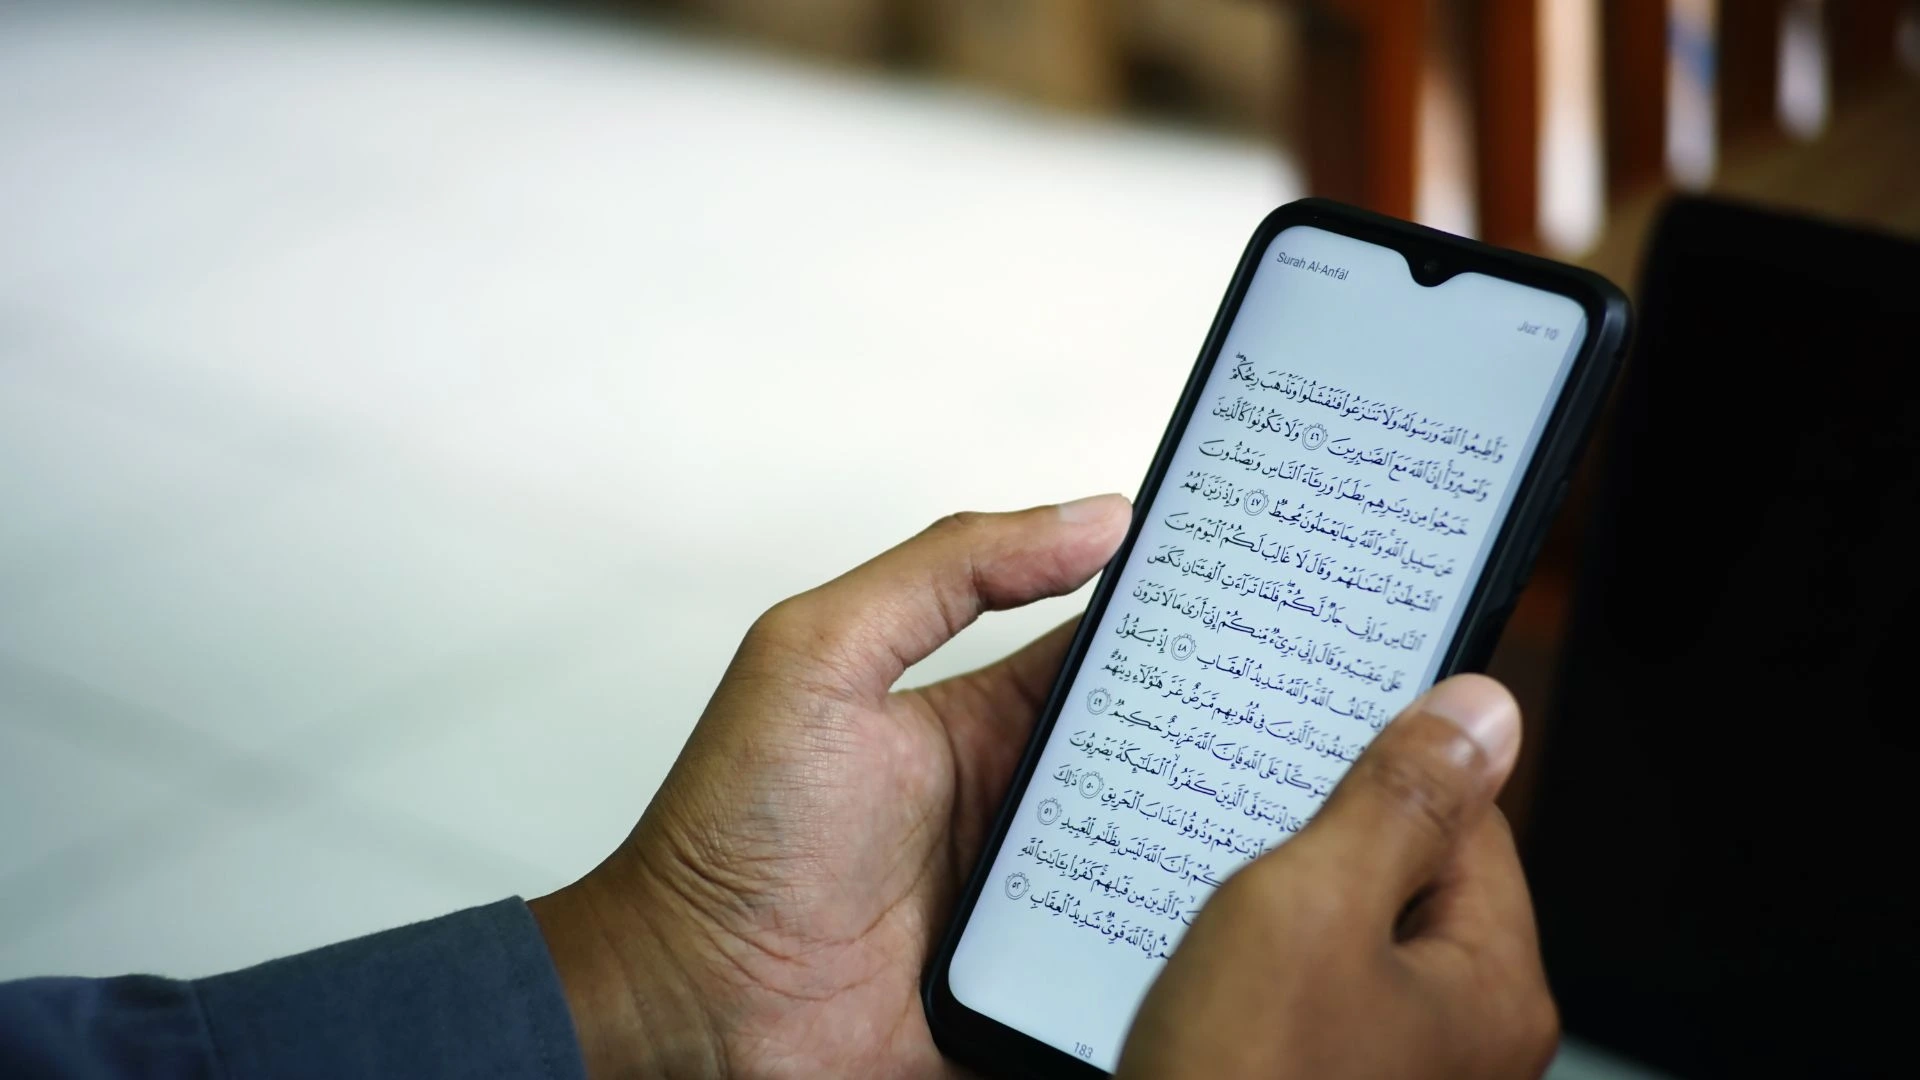 Surah Al-Anfāl
Juz' 10
وَأَطِيعُوا۟ ٱللَّهَ وَرَسُولَهُۥ وَلَا تَنَـٰزَعُوا۟ فَتَفْشَلُوا۟ وَتَذْهَبَ رِيحُكُمْ ۖ
وَٱصْبِرُوٓا۟ ۚ إِنَّ ٱللَّهَ مَعَ ٱلصَّـٰبِرِينَ ٤٦ وَلَا تَكُونُوا۟ كَٱلَّذِينَ
خَرَجُوا۟ مِن دِيَـٰرِهِم بَطَرًا وَرِئَآءَ ٱلنَّاسِ وَيَصُدُّونَ
عَن سَبِيلِ ٱللَّهِ ۚ وَٱللَّهُ بِمَا يَعْمَلُونَ مُحِيطٌ ٤٧ وَإِذْ زَيَّنَ لَهُمُ
ٱلشَّيْطَـٰنُ أَعْمَـٰلَهُمْ وَقَالَ لَا غَالِبَ لَكُمُ ٱلْيَوْمَ مِنَ
ٱلنَّاسِ وَإِنِّى جَارٌ لَّكُمْ ۖ فَلَمَّا تَرَآءَتِ ٱلْفِئَتَانِ نَكَصَ
عَلَىٰ عَقِبَيْهِ وَقَالَ إِنِّى بَرِىٓءٌ مِّنكُمْ إِنِّىٓ أَرَىٰ مَا لَا تَرَوْنَ
إِنِّىٓ أَخَافُ ٱللَّهَ ۚ وَٱللَّهُ شَدِيدُ ٱلْعِقَابِ ٤٨ إِذْ يَقُولُ
وَٱلَّذِينَ فِى قُلُوبِهِم مَّرَضٌ غَرَّ هَـٰٓؤُلَآءِ دِينُهُمْ ۗ
يَتَوَكَّلْ عَلَى ٱللَّهِ فَإِنَّ ٱللَّهَ عَزِيزٌ حَكِيمٌ ٤٩
إِذْ يَتَوَفَّى ٱلَّذِينَ كَفَرُوا۟ ۙ ٱلْمَلَـٰٓئِكَةُ يَضْرِبُونَ
وَأَدْبَـٰرَهُمْ وَذُوقُوا۟ عَذَابَ ٱلْحَرِيقِ ٥٠ ذَٰلِكَ
وَأَنَّ ٱللَّهَ لَيْسَ بِظَلَّـٰمٍ لِّلْعَبِيدِ ٥١
وَٱلَّذِينَ مِن قَبْلِهِمْ ۚ كَفَرُوا۟ بِـَٔايَـٰتِ ٱللَّهِ
إِنَّ ٱللَّهَ قَوِىٌّ شَدِيدُ ٱلْعِقَابِ ٥٢
183